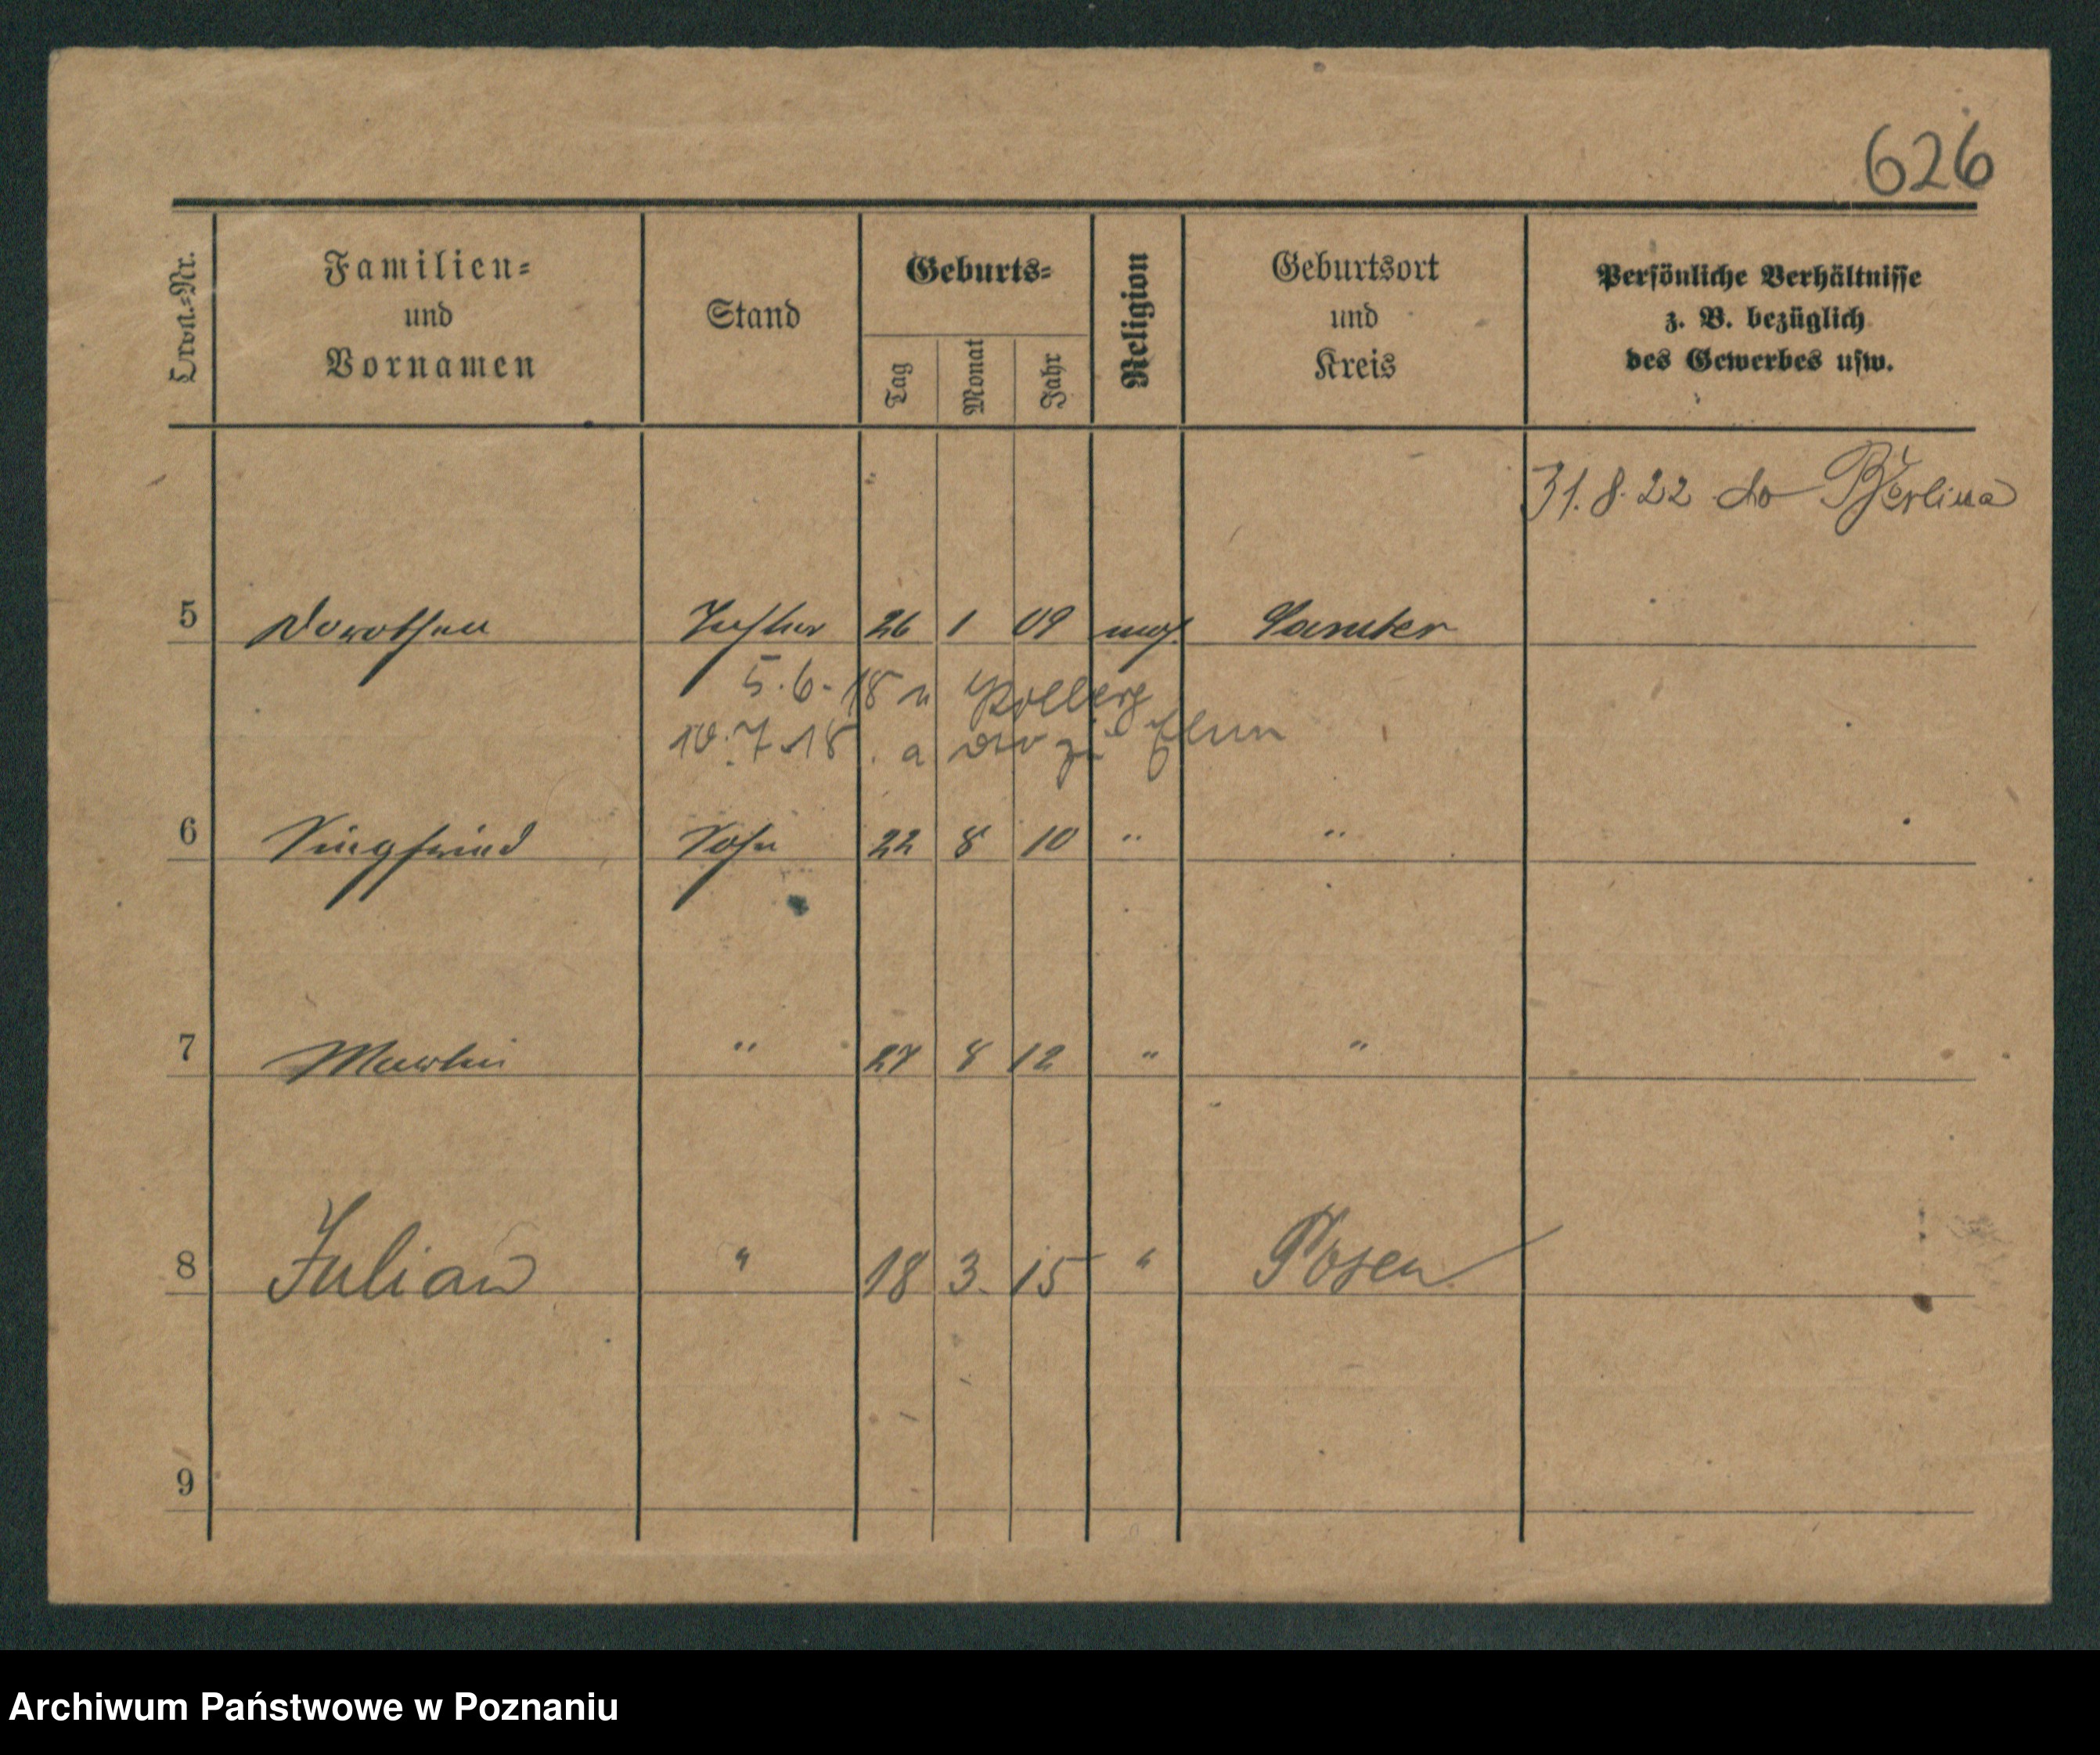 626
Lfd.-Nr. Familien- und Vornamen Stand Geburts- Tag Monat Jahr Religion Geburtsort und Kreis Persönliche Verhältnisse z. B. bezüglich des Gewerbes usw.
31.8.22 do Berlina
5 Dorothea Tochter 26 1 09 mos. Samter
5.6.18 n Kolberg
10.7.18. a dto zu Eltern
6 Siegfried Sohn 22 8 10 " "
7 Martin " 27 8 12 " "
8 Julian " 18 3. 15 " Posen
9
Archiwum Państwowe w Poznaniu